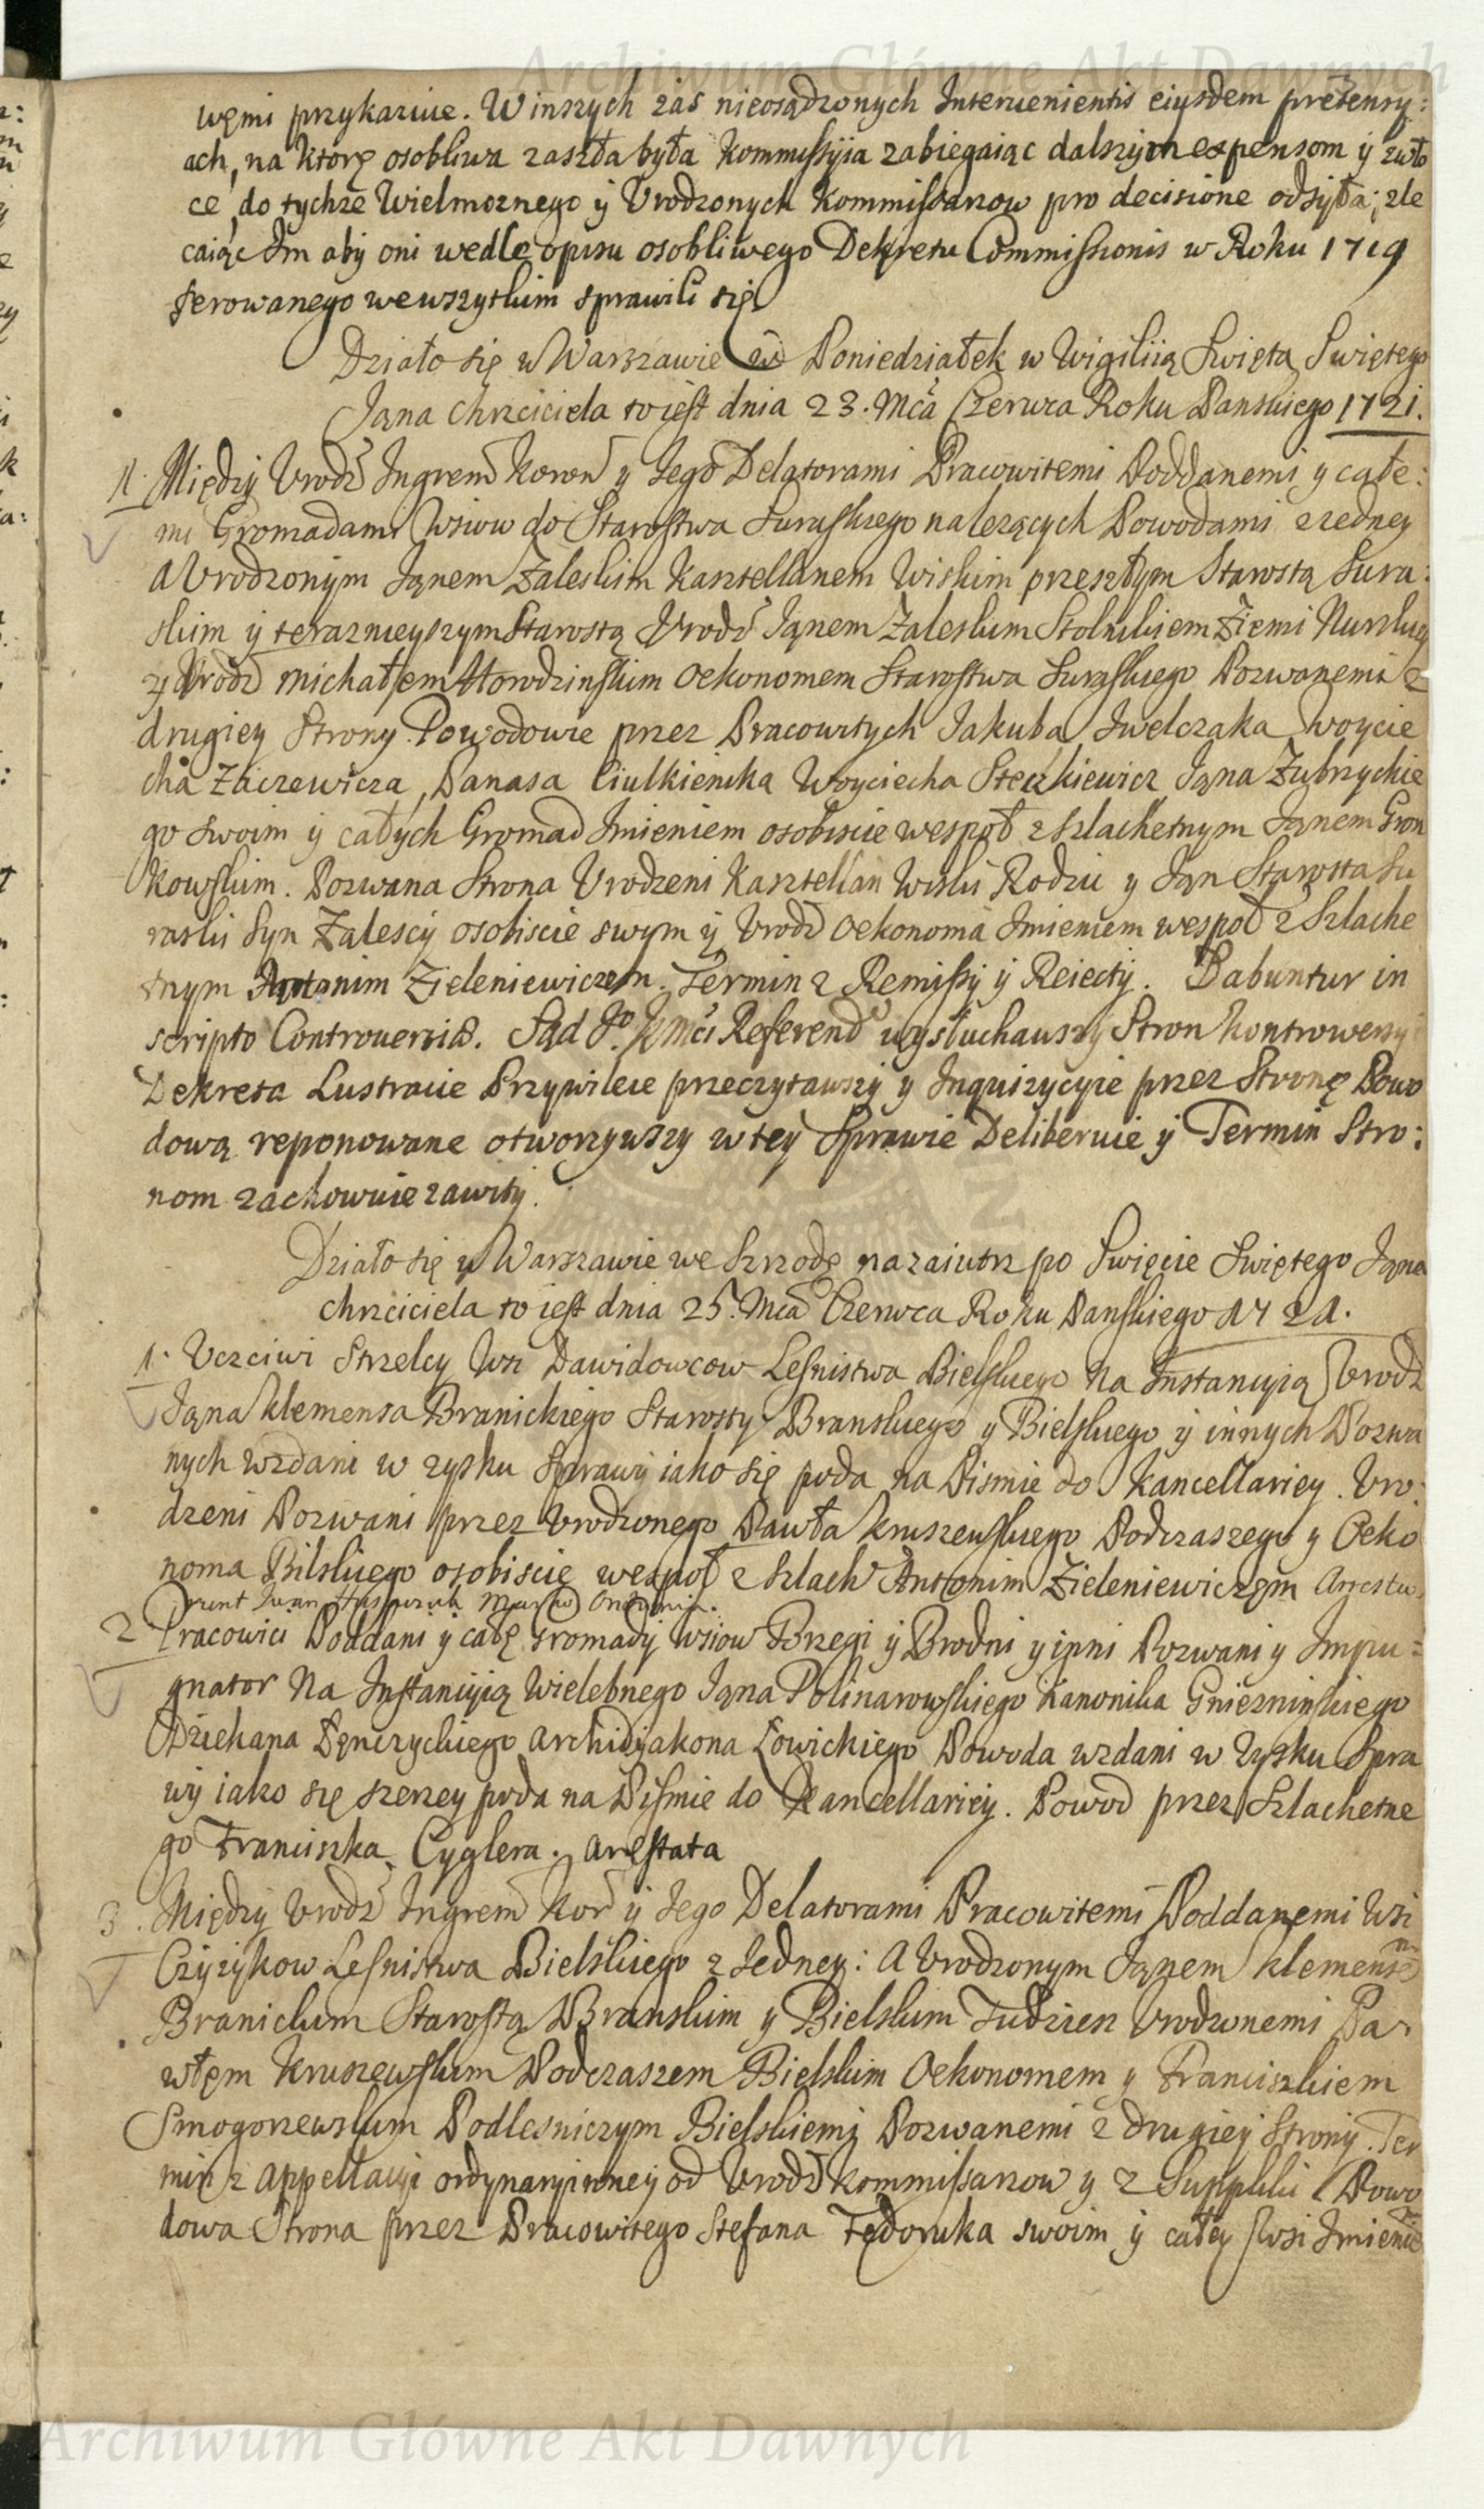 Archiwum Główne Akt Dawnych
wemi przykazuie. W inszych zas nieosądzonych Interuenientis eiusdem pretensy:
ach, na ktorę osobliwa zaszła była Kommissyia zabiegaiąc dalszym expensom y zwło
ce, do tychże Wielmoznego y Vrodzonych Kommissarzow pro decisione odsyła; zle
caiąc Im aby oni wedle opisu osobliwego Dekretu Commissionis w Roku 1719
ferowanego we wszytkim sprawili się
Działo się w Warszawie w Poniedziałek w Wigiliią Swięta Swiętego
Jąna Chrzciciela to iest dnia 23. Mca Czerwca Roku Panskiego 1721.
1. Między Vrodz Ingrem Koron y Jego Delatorami Pracowitemi Poddanemi y całe:
mi Gromadami Wsiow do Starostwa Suraskiego nalezących Powodami z iedney
a Vrodzonym Jąnem Zaleskim Kasztellanem Wiskim przeszłym Starostą Sura:
skim y teraznieyszym Starostą Vrodz Jąnem Zaleskim Stolnikiem Ziemi Nurskiey
y Vrodz Michałem Howdzinskim Oekonomem Starostwa Suraskiego Pozwanemi z
drugiey Strony. Powodowie przez Pracowitych Jakuba Iwelczaka Woycie
cha Zaiczewicza, Panasa Ciulkienika Woyciecha Steckiewicz Jąna Zubrzyckie
go swoim y całych Gromad Imieniem osobiscie wespoł z Szlachetnym Jąnem Gron
kowskim. Pozwana Strona Vrodzeni Kasztellan Wiski Rodzic y Jąn Starosta Su
raski Syn Zalescy osobiscie swym y Vrodz Oekonoma Imieniem wespoł z Szlache
tnym Antonim Zieleniewiczem. Termin z Remissy y Reiecty. Dabuntur in
scripto Controuersiæ. Sąd Jo K Mci Referend wysłuchawszy Stron kontrowersyi
Dekreta Lustracie Przywileie przeczytawszy y Inquizycyie przez Stronę Powo
dową reponowane otworzywszy w tey Sprawie Deliberuie y Termin Stro:
nom zachowuie zawity.
Działo się w Warszawie we Szrzodę nazaiutrz po Swięcie Swiętego Jąna
chrzciciela to iest dnia 25. Mca Czerwca Roku Panskiego 1721.
1. Vczciwi Strzelcy Wsi Dawidowcow Lesnistwa Bielskiego Na Instancyią Vrodz
Jąna Klemensa Branickiego Starosty Branskiego y Bielskiego y innych Pozwa
nych wzdani w zysku Sprawy iako się poda na Pismie do Kancellariey. Vro:
dzeni Pozwani przez Vrodzonego Pawła Kruszewskiego Podczaszego y Oeko
noma Bilskiego osobiscie wespoł z Szlach Antonim Zieleniewiczem Arestu.
2 Pracowici Poddani y całę gromady Wsiow Brzegi y Brodni y inni Pozwani y Impu=
gnator Na Instancyią Wielebnego Jąna Polinarowskiego Kanonika Gniezninskiego
Dziekana Łęnczyckiego Archidyakona Łowickiego Powoda wzdani w Zysku Spra
wy iako się szerzey poda na Pismie do Kancellariey. Powod przez Szlachetne
go Franciszka Cyglera. Arestata
3. Między Vrodz Ingrem Kor y Jego Delatorami Pracowitemi Poddanemi Wsi
Czyzykow Lesnistwa Bielskiego z Jedney: A Vrodzonym Jąnem Klemensem
Branickim Starostą Branskim y Bielskim Tudziesz Vrodzonemi Pa
włem Kruszewskim Podczaszem Bielskim Oekonomem y Franciszkiem
Smogorzewskim Podlesniczym Bielskiemi Pozwanemi z drugiey Strony. Ter
min z Appellacyi ordynaryinney od Vrodz Kommissarzow y z Suppliki Powo
dowa Strona przez Pracowitego Stefana Fędoruka swoim y całey Wsi Imienie
Archiwum Główne Akt Dawnych